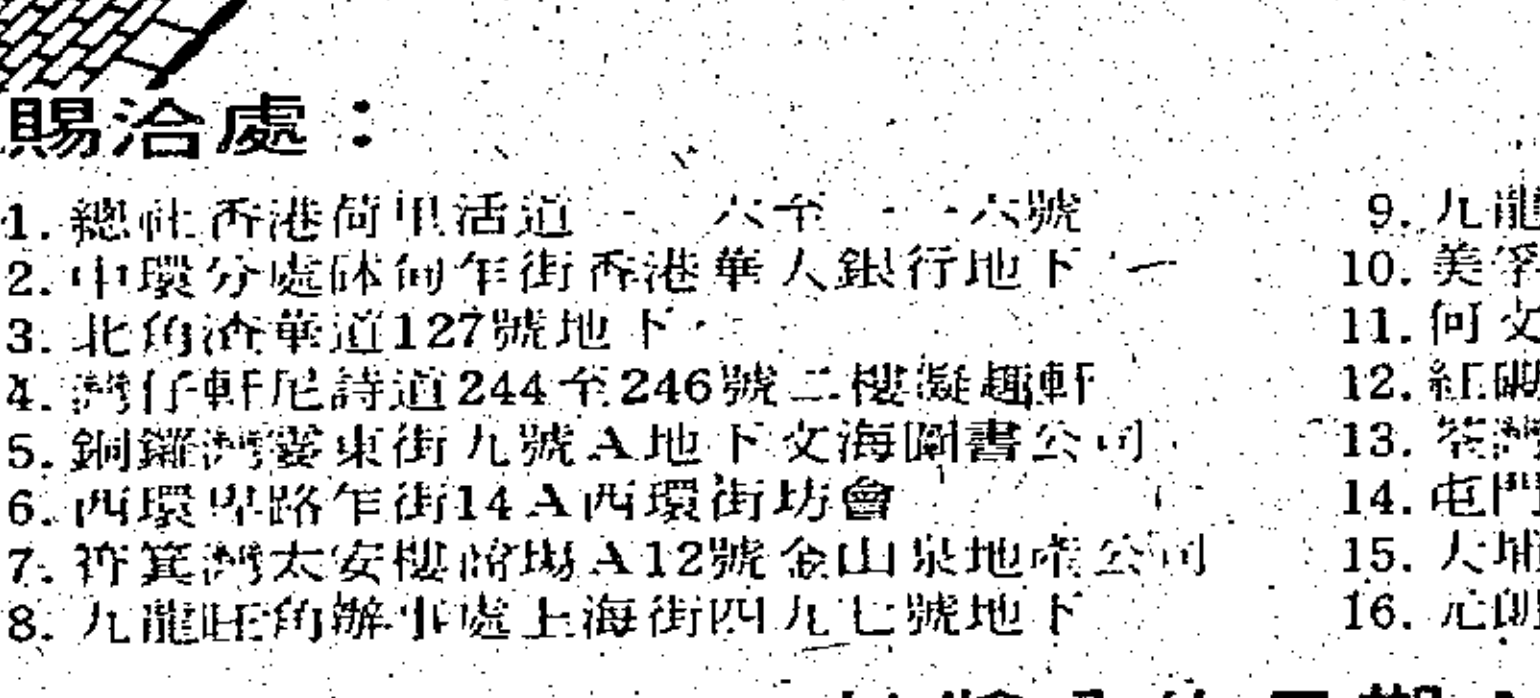 賜洽處：
1. 總社香港荷里活道 六至 六號
2. 中環分處砵甸乍街香港華人銀行地下
3. 北角渣華道127號地下
4. 灣仔軒尼詩道244至246號二樓凝趣軒
5. 銅鑼灣霎東街九號A地下文海圖書公司
6. 西環卑路乍街14A西環街坊會
7. 筲箕灣太安樓商場A12號金山泉地產公司
8. 九龍旺角辦事處上海街四九七號地下
9. 九龍
10. 美孚
11. 何文
12. 紅磡
13. 荃灣
14. 屯門
15. 大埔
16. 元朗